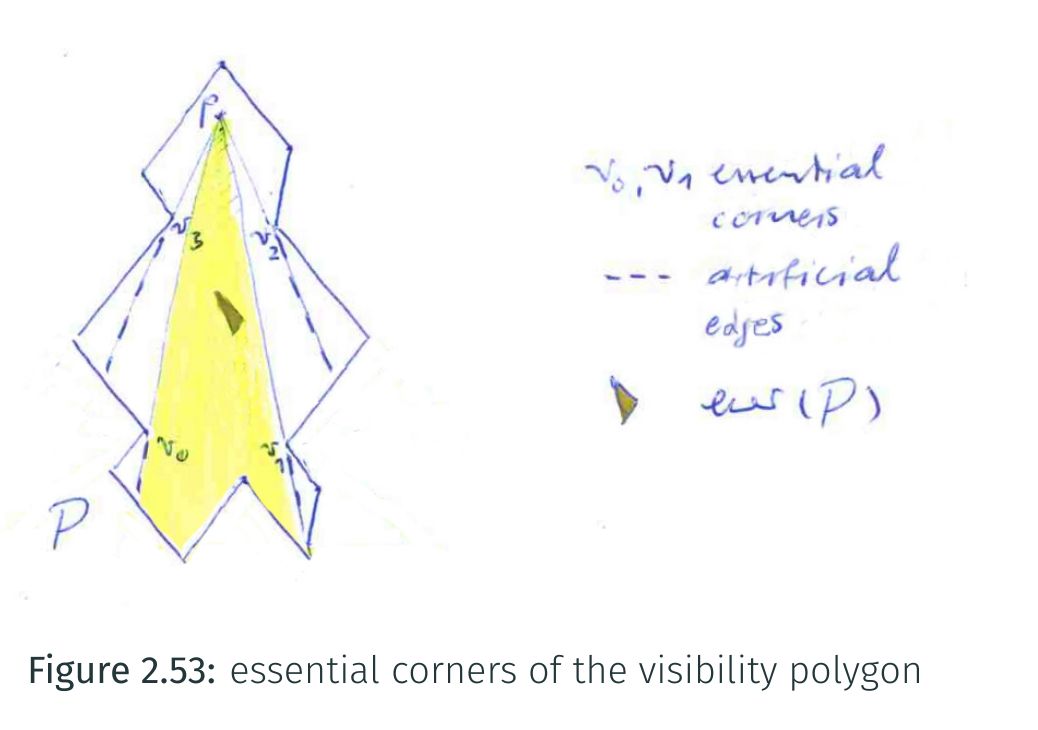 p
v₃
v₂
v₀
v₁
P
v₀, v₁ essential
corners
--- artificial
edges
(P)
Figure 2.53: essential corners of the visibility polygon